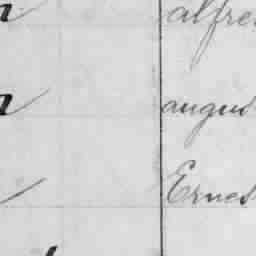 alfre
augus
Ernes